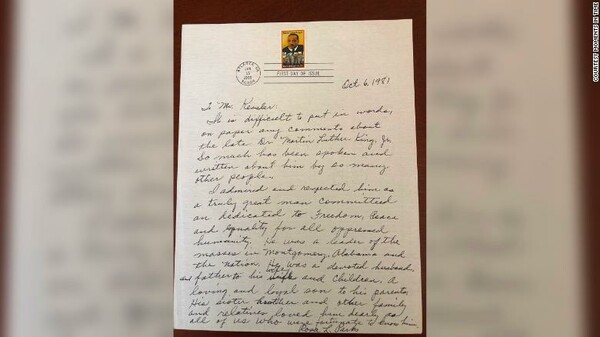 FIRST DAY OF ISSUE
Oct 6, 1981
To Mr. Kessler:
It is difficult to put in words,
on paper any comments about
the late Dr Martin Luther King, Jr.
So much has been spoken and
written about him by so many
other people.
I admired and respected him as
a truly great man committed
an dedicated to Freedom, Peace
and equality for all oppressed
humanity. He was a leader of the
masses in Montgomery, Alabama and
the nation. He was a devoted husband
and father to his wife and children. A
loving and loyal son to his parents.
His sister brother and other family
and relatives loved him dearly as
all of us who were fortunate to know him.
Rosa L. Parks
COURTESY MOMENTS IN TIME